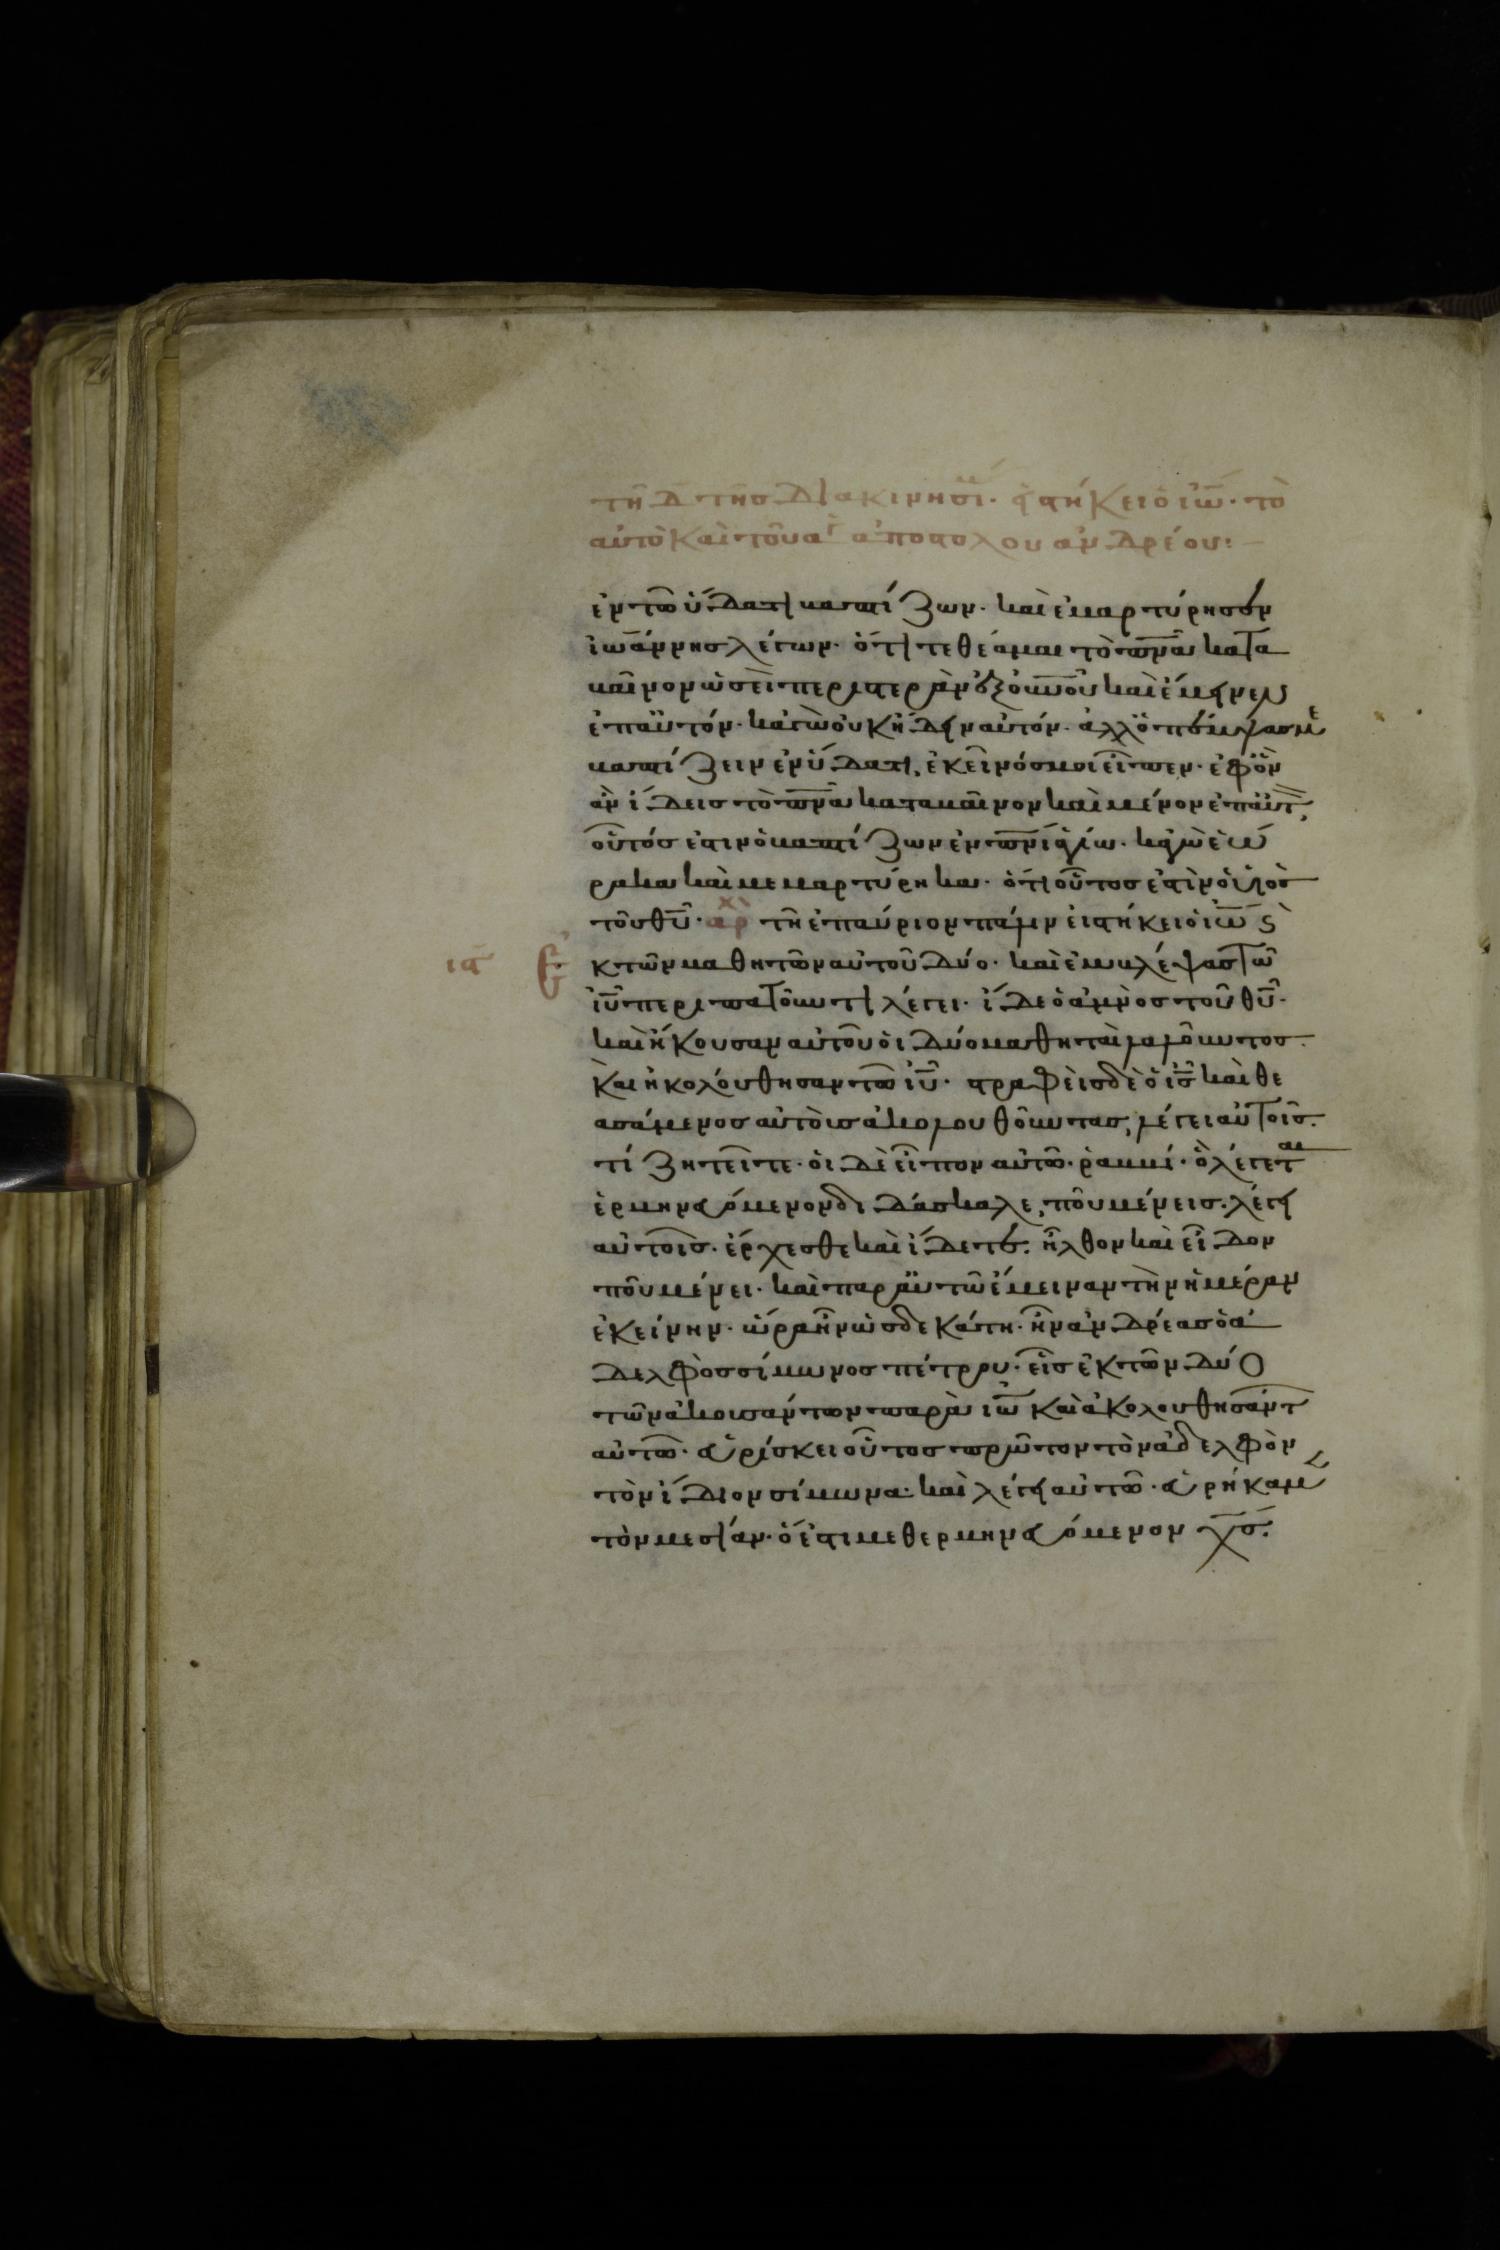 τῆ δ τῆς διακινησί· εἱστήκει ὁ ἰω̅· τὸ
αὐτὸ καὶ τοῦ ἁγ ἀποστόλου ἀνδρέου:
ἐν τῶ ὕδατι βαπτίζων· καὶ ἐμαρτύρησεν
ἰωάννης λέγων· ὅτι τεθέαμαι τὸ πν̅α κατα
βαῖνον ὡσεὶ περιστερὰν ἐξ οὐν̅οῦ καὶ ἔμεινεν
ἐπαὐτόν· κἀγὼ οὐκ ἤδειν αὐτόν· ἀλλ ὁ πέμψας με
βαπτίζειν ἐν ὕδατι, ἐκεῖνός μοι εἶπεν· ἐφ ὃν
ἂν ἴδεις τὸ πν̅α καταβαῖνον καὶ μένον ἐπαὐτ,
οὗτός ἐστιν ὁ βαπτίζων ἐν πν̅ι ἁγίω· κἀγὼ ἑώ
ρακα καὶ μεμαρτύρηκα· ὅτι οὗτος ἐστὶν ὁ υἱὸς
τοῦ θυ̅· ἀρχ τῆ ἐπαύριον πάλιν εἱστήκει ὁ ἰω̅ ϛ
ια ἐ κ τῶν μαθητῶν αὐτοῦ δύο· καὶ ἐμβλέψας τῶ
ἰυ̅ περιπατοῦντι λέγει· ἴδε ὁ ἀμνὸς τοῦ θυ̅·
καὶ ἤκουσαν αὐτοῦ οἱ δύο μαθηταὶ λαλοῦντος·
καὶ ἠκολούθησαν τῶ ἰυ̅· στραφεὶς δὲ ὁ ἰς̅ καὶ θε
ασάμενος αὐτοὺς ἀκολουθοῦντας, λέγει αὐτοῖς·
τί ζητεῖτε· οἱ δὲ εἶπον αὐτῶ· ῥαββί· ὃ λέγεται
ἑρμηνευόμενον διδάσκαλε, ποῦ μένεις· λέγει
αὐτοῖς· ἔρχεσθε καὶ ἴδετε· ἦλθον καὶ εἶδον
ποῦ μένει· καὶ παραὐτῶ ἔμειναν τὴν ἡμέραν
ἐκείνην· ὥρα ἦν ὡς δεκάτη· ἦν ἀνδρέας ὁ ἀ
δελφὸς σίμωνος πέτρου· εἷς ἐκ τῶν δύο
τῶν ἀκουσάντων παρὰ ἰω̅ καὶ ἀκολουθησάντ
αὐτῶ· εὑρίσκει οὗτος πρῶτον τὸν ἀδελφὸν
τὸν ἴδιον σίμωνα· καὶ λέγει αὐτῶ· εὑρήκαμεν
τὸν μεσίαν· ὅ ἐστι μεθερμηνευόμενον χς̅·